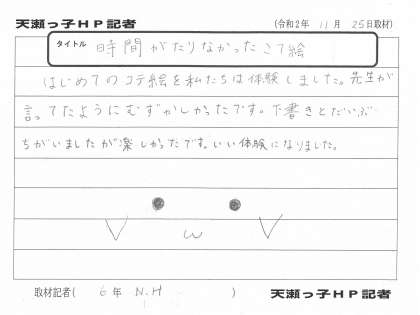 天瀬っ子HP記者
(令和2年 11月 25日取材)
タイトル 時間がたりなかったこて絵
はじめてのコテ絵を私たちは体験しました。先生が
言ってたようにむずかしかったです。下書きとだいぶ
ちがいましたが楽しかったです。いい体験になりました。
取材記者( 6年 N.H )
天瀬っ子HP記者